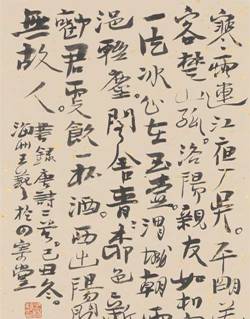 寒雨連江夜入吳平明送
客楚山孤洛陽親友如相問
一片冰心在玉壺渭城朝雨
浥輕塵客舍青青柳色新
勸君更飲一杯酒西出陽關
無故人
書錄唐詩二首己丑冬
海州王於堂